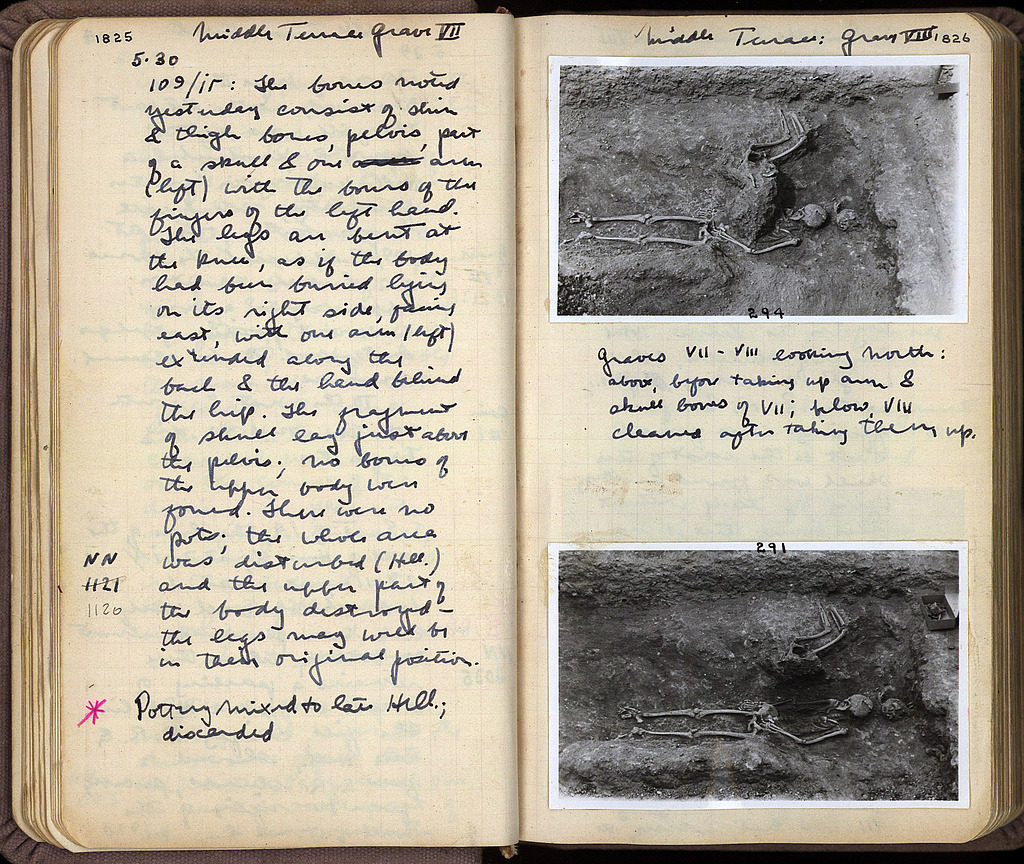 1825
Middle Terrace Grave VII
5.30
109/ΙΓ: The bones noted
yesterday consist of shin
& thigh bones, pelvis, part
of a skull & one arm
(left) with the bones of the
fingers of the left hand.
The legs are bent at
the knee, as if the body
had been buried lying
on its right side, facing
east, with one arm (left)
extended along the
back & the hand behind
the hip. The fragment
of skull lay just above
the pelvis; no bones of
the upper body were
found. There were no
pots; the whole area
was disturbed (Hell.)
and the upper part of
the body destroyed –
the legs may well be
in their original position.
NN
1121
1120
* Pottery mixed to late Hell.;
discarded
Middle Terrace: Grave VIII
1826
294
Graves VII - VIII looking north:
above, before taking up arm &
skull bones of VII; below, VIII
cleaned after taking them up.
291